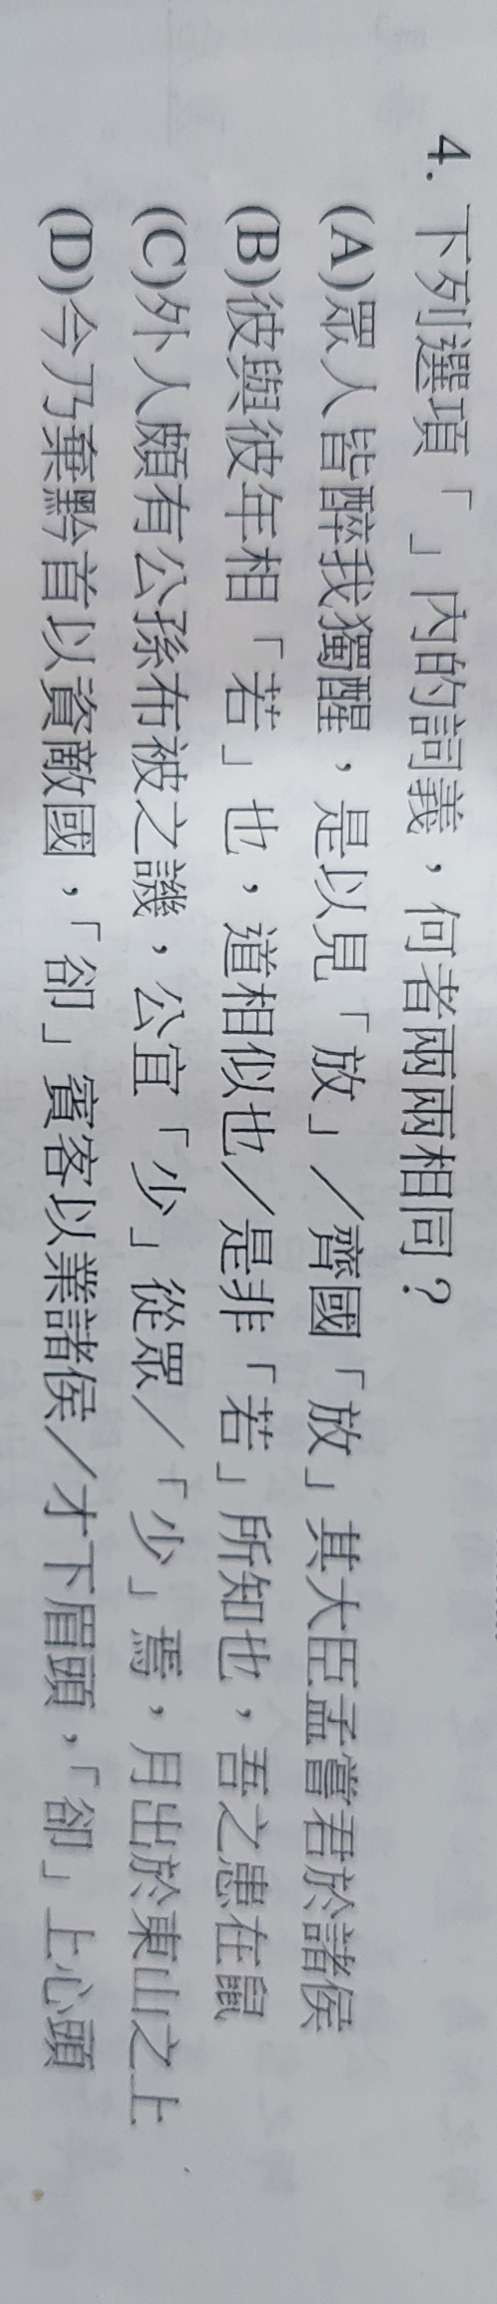 4. 下列選項「 」內的詞義，何者兩兩相同？
(A)眾人皆醉我獨醒，是以見「放」／齊國「放」其大臣孟嘗君於諸侯
(B)彼與彼年相「若」也，道相似也／是非「若」所知也，吾之患在鼠
(C)外人頗有公孫布被之譏，公宜「少」從眾／「少」焉，月出於東山之上
(D)今乃棄黔首以資敵國，「卻」賓客以業諸侯／才下眉頭，「卻」上心頭